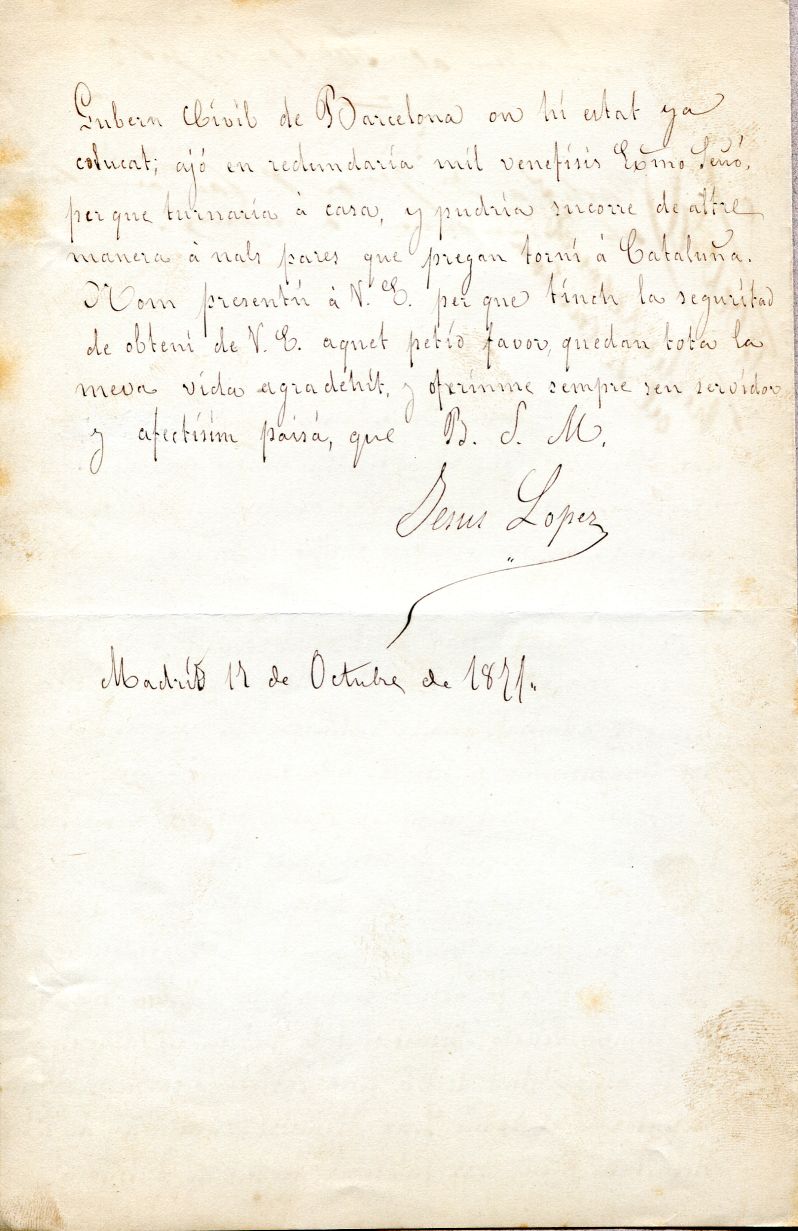 Gubern Civil de Barcelona on hi estat ya
colucat; ajó en redundaría mil venefisis Exmo Señó,
per que turnaría á casa, y pudría sucorre de altre
manera á nals pares que pregan torni á Cataluña.
Nom presentü á V. E. per que tinch la seguritad
de obteni de V. E. aquet petid favor, quedan tota la
meva vida agradehit, y oferinme sempre seu servidor
y afectisim paisá, que B. S. M.
Jesus Lopez
Madrid 12 de Octubre de 1871.